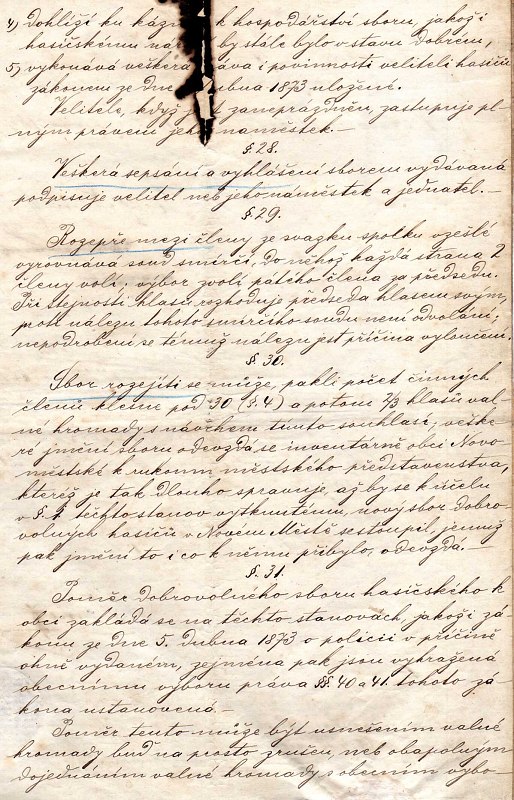 4) Dohlíží ku kázni k hospodářství sboru, jakož i
hasičskému by stále bylo v stavu dobrém,
5) vykonává veškerá práva i povinnosti veliteli hasičů
zákonem ze dne dubna 1873 uložené.
Velitele, když jest zaneprázdněn, zastupuje pl-
ným právem jeho náměstek.—
§. 28.
Veškerá sepsání a vyhlášení sborem vydávaná
podpisuje velitel neb jeho náměstek a jednatel.—
§ 29.
Rozepře mezi členy ze svazku spolku vzešlé
vyrovnává soud smírčí, do něhož každá strana 2
členy volí; výbor zvolí pátého člena za předsedu.
Při stejnosti hlasů rozhoduje předseda hlasem svým,
proti nálezu tohoto smírčího soudu není odvolání;
nepodrobení se témuž nálezu jest příčina vyloučení.
§. 30.
Sbor rozejíti se může, pakli počet činných
členů klesne pod 30 (§. 4) a potom 2/3 hlasů val-
né hromady s návrhem tímto souhlasí; veške-
ré jmění sboru odevzdá se inventárně obci Novo-
městské k rukoum městského představenstva,
kteréž je tak dlouho spravuje, až by se k účelu
v §. 1 těchto stanov vytknutému, nový sbor dobro-
volných hasičů v Novém Městě sestoupil, jemuž
pak jmění to i co k němu přibylo, odevzdá.—
§. 31.
Poměr dobrovolného sboru hasičského k
obci zakládá se na těchto stanovách, jakož i zá-
konu ze dne 5. dubna 1873 o policii v příčině
ohně vydaném, zejména pak jsou vyhražená
obecnímu výboru práva §§. 40 a 41. tohoto zá-
kona ustanovená.—
Poměr tento může být usnešením valné
hromady buď na prosto zrušen, neb obapolným
dojednáním valné hromady s obecním výbo-